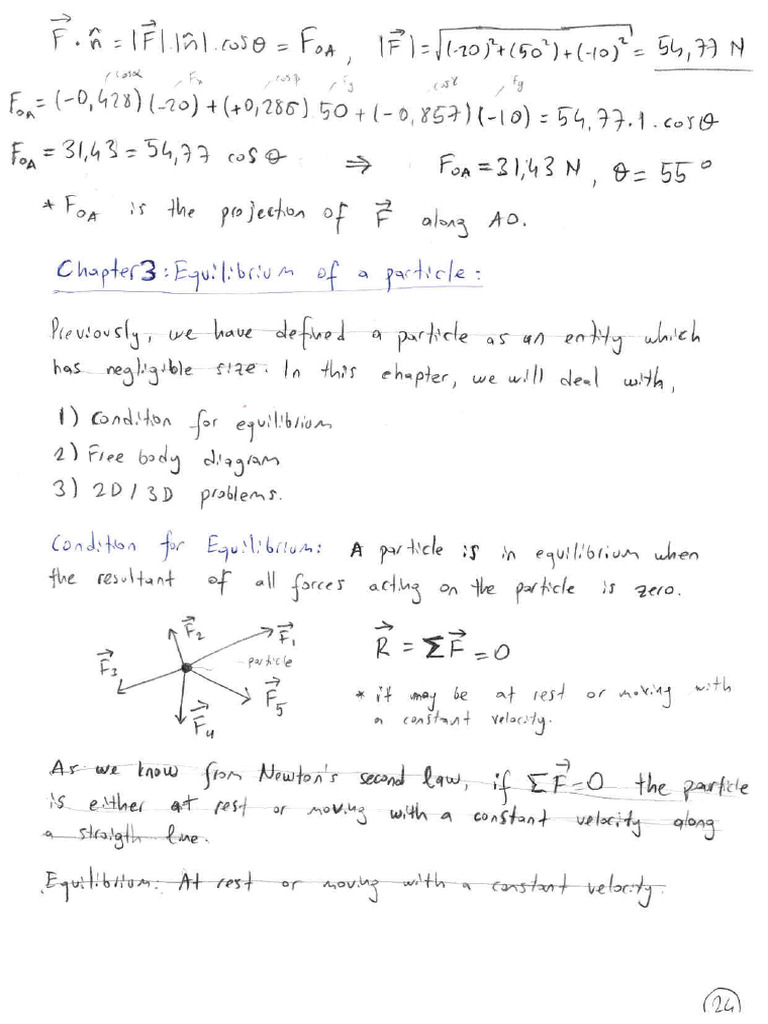 F⃗ · n̂ = |F⃗|.|n̂|.cosθ = F_OA, |F⃗| = √((-20)²+(50²)+(-10)²) = 54,77 N
cosα Fx cosβ Fy cosγ Fy
F_OA = (-0,428)(-20)+(+0,285)50+(-0,857)(-10) = 54,77.1.cosθ
F_OA = 31,43 = 54,77 cosθ ⇒ F_OA = 31,43 N, θ = 55°
* F_OA is the projection of F⃗ along AO.
Chapter 3: Equilibrium of a particle:
Previously, we have defined a particle as an entity which
has negligible size. In this chapter, we will deal with,
1) Condition for equilibrium
2) Free body diagram
3) 2D / 3D problems.
Condition for Equilibrium: A particle is in equilibrium when
the resultant of all forces acting on the particle is zero.
F⃗2
F⃗1
particle
F⃗3
F⃗5
F⃗4
R⃗ = ΣF⃗ = 0
* it may be at rest or moving with
a constant velocity.
As we know from Newton's second law, if ΣF⃗=0 the particle
is either at rest or moving with a constant velocity along
a straigth line.
Equilibrium: At rest or moving with a constant velocity.
24